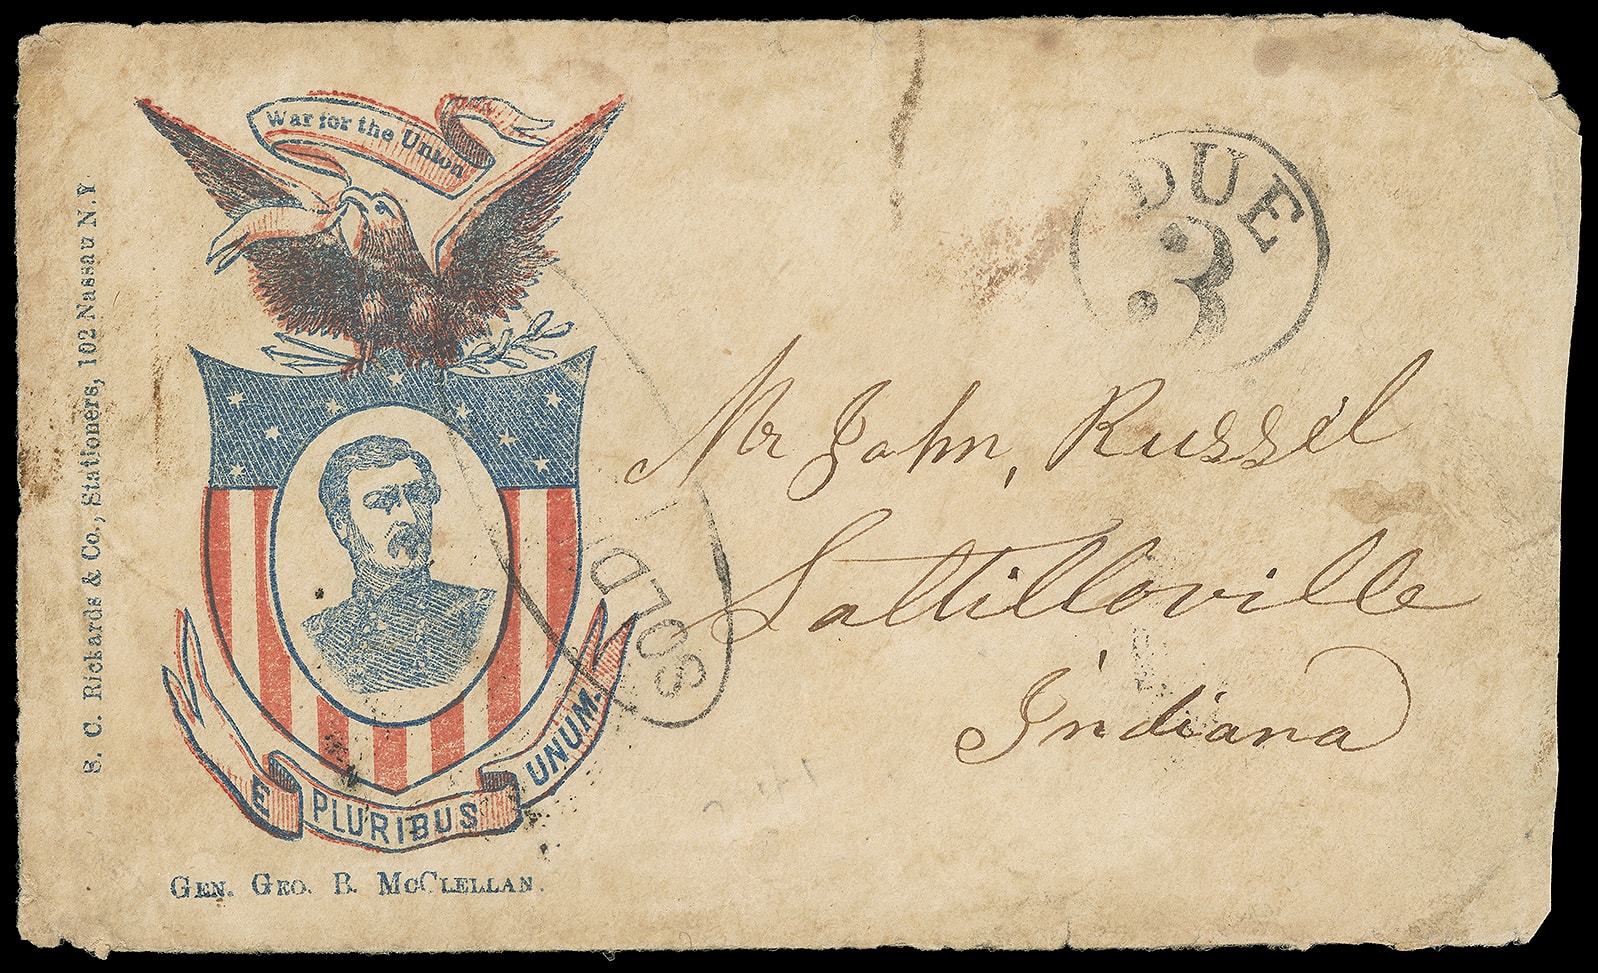 War for the Union
S. C. Rickards & Co., Stationers, 102 Nassau N.Y
E PLURIBUS UNUM.
GEN. GEO. B. McCLELLAN.
DUE
3
SOLDI
Mr John, Russel
Lattilloville
Indiana